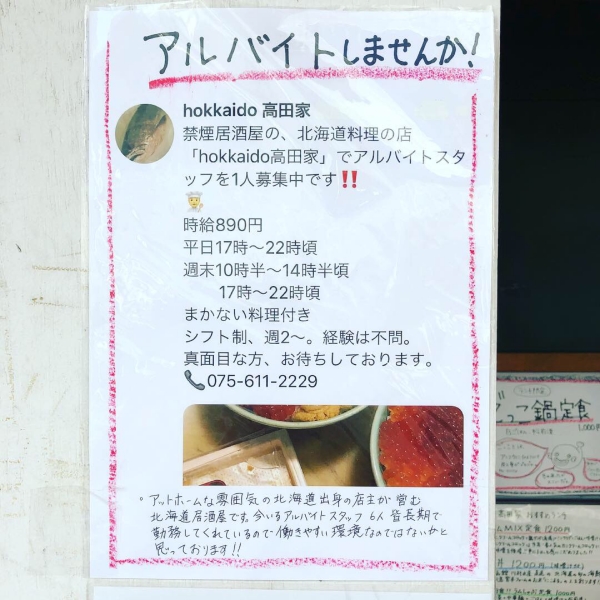 アルバイトしませんか!
hokkaido 高田家
禁煙居酒屋の、北海道料理の店
「hokkaido高田家」でアルバイトスタ
ッフを1人募集中です‼️
時給890円
平日17時〜22時頃
週末10時半〜14時半頃
17時〜22時頃
まかない料理付き
シフト制、週2〜。経験は不問。
真面目な方、お待ちしております。
📞075-611-2229
。アットホームな雰囲気の北海道出身の店主が営む
北海道居酒屋です。今いるアルバイトスタッフ6人皆長期で
勤務してくれているので働きやすい環境なのではないかと
思っております!!
っこ鍋定食
1,000円
MIX定食 1200円
丼 1200円
定食 1000円